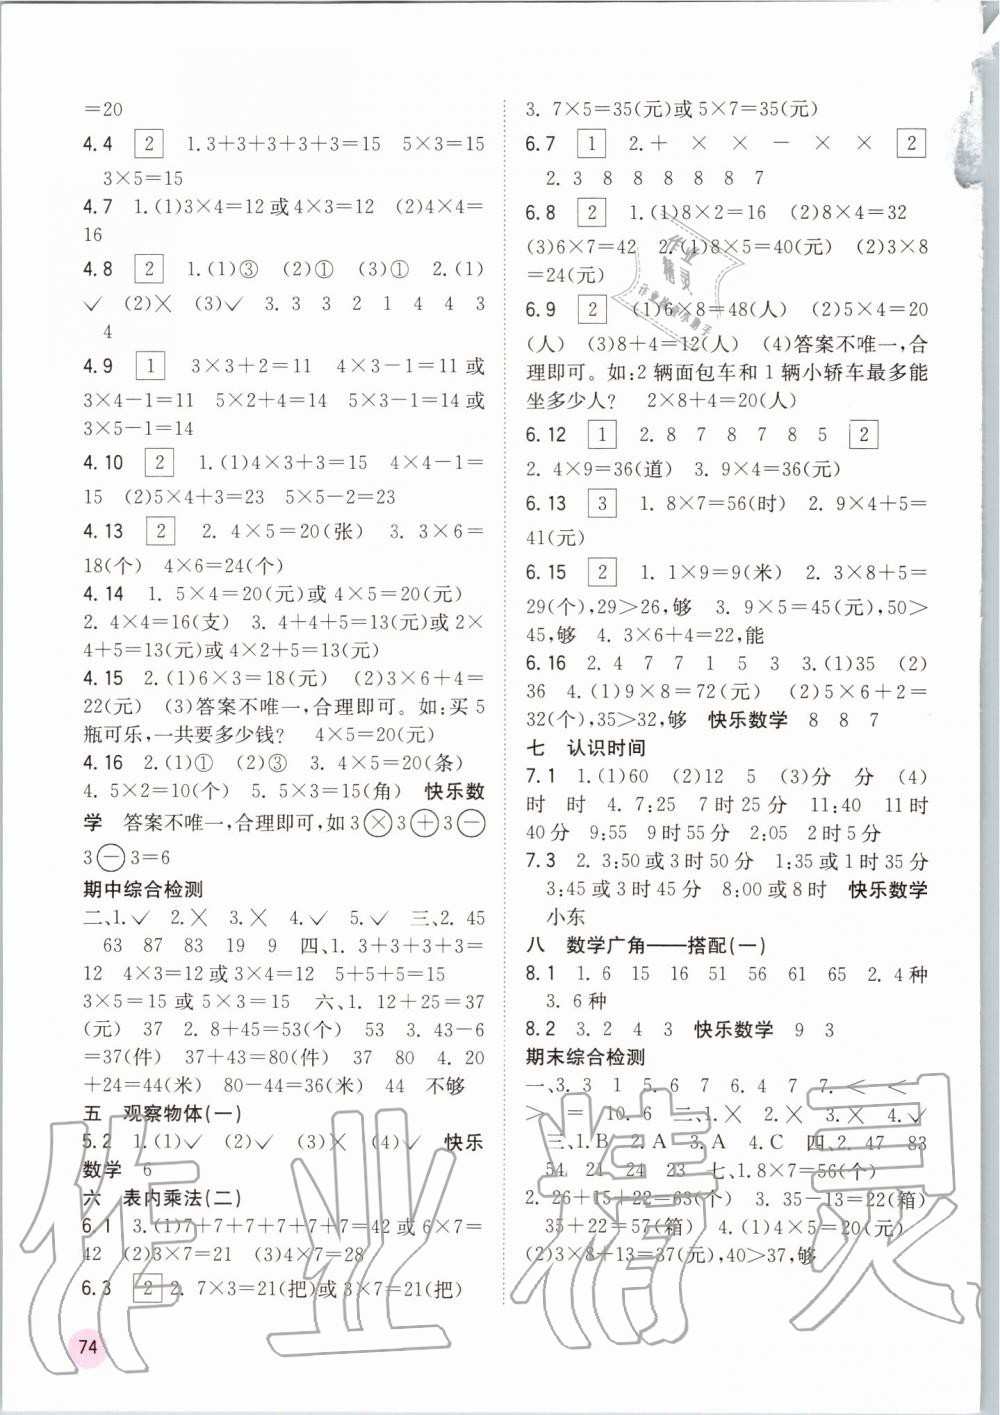 =20
4.4 2 1.3+3+3+3+3=15 5×3=15
3×5=15
4.7 1.(1)3×4=12或4×3=12 (2)4×4=
16
4.8 2 1.(1)③ (2)① (3)① 2.(1)
✓ (2)× (3)✓ 3. 3 3 2 1 4 4 3
4
4.9 1 3×3+2=11 4×3-1=11或
3×4-1=11 5×2+4=14 5×3-1=14或
3×5-1=14
4.10 2 1.(1)4×3+3=15 4×4-1=
15 (2)5×4+3=23 5×5-2=23
4.13 2 2. 4×5=20(张) 3. 3×6=
18(个) 4×6=24(个)
4.14 1. 5×4=20(元)或4×5=20(元)
2. 4×4=16(支) 3. 4+4+5=13(元)或2×
4+5=13(元)或4×2+5=13(元)
4.15 2.(1)6×3=18(元) (2)3×6+4=
22(元) (3)答案不唯一,合理即可。如:买5
瓶可乐,一共要多少钱? 4×5=20(元)
4.16 2.(1)① (2)③ 3. 4×5=20(条)
4. 5×2=10(个) 5. 5×3=15(角) 快乐数
学 答案不唯一,合理即可,如3⊗3⊕3⊖
3⊖3=6
期中综合检测
二、1.✓ 2.× 3.× 4.✓ 5.✓ 三、2. 45
63 87 83 19 9 四、1. 3+3+3+3=
12 4×3=12或3×4=12 5+5+5=15
3×5=15或5×3=15 六、1. 12+25=37
(元) 37 2. 8+45=53(个) 53 3. 43-6
=37(件) 37+43=80(件) 37 80 4. 20
+24=44(米) 80-44=36(米) 44 不够
五 观察物体(一)
5.2 1.(1)✓ (2)✓ (3)× (4)✓ 快乐
数学 6
六 表内乘法(二)
6.1 3.(1)7+7+7+7+7+7=42或6×7=
42 (2)3×7=21 (3)4×7=28
6.3 2 2. 7×3=21(把)或3×7=21(把)
74
3. 7×5=35(元)或5×7=35(元)
6.7 1 2.+ × × - × × 2
2. 3 8 8 8 8 8 7
6.8 2 1.(1)8×2=16 (2)8×4=32
(3)6×7=42 2.(1)8×5=40(元) (2)3×8
=24(元)
6.9 2 (1)6×8=48(人) (2)5×4=20
(人) (3)8+4=12(人) (4)答案不唯一,合
理即可。如:2辆面包车和1辆小轿车最多能
坐多少人? 2×8+4=20(人)
6.12 1 2. 8 7 8 7 8 5 2
2. 4×9=36(道) 3. 9×4=36(元)
6.13 3 1. 8×7=56(时) 2. 9×4+5=
41(元)
6.15 2 1. 1×9=9(米) 2. 3×8+5=
29(个),29>26,够 3. 9×5=45(元),50>
45,够 4. 3×6+4=22,能
6.16 2. 4 7 7 1 5 3 3.(1)35 (2)
36 4.(1)9×8=72(元) (2)5×6+2=
32(个),35>32,够 快乐数学 8 8 7
七 认识时间
7.1 1.(1)60 (2)12 5 (3)分 分 (4)
时 时 4. 7:25 7时25分 11:40 11时
40分 9:55 9时55分 2:05 2时5分
7.3 2. 3:50或3时50分 1:35或1时35分
3:45或3时45分 8:00或8时 快乐数学
小东
八 数学广角——搭配(一)
8.1 1. 6 15 16 51 56 61 65 2. 4种
3. 6种
8.2 3. 2 4 3 快乐数学 9 3
期末综合检测
一、3. 3 1 5. 6 7 6. 4 7 7. < <
> = 10. 6 二、1.× 2.× 3.× 4.✓
三、1. B 2. A 3. A 4. C 四、2. 47 83
54 21 24 23 七、1. 8×7=56(个)
2. 26+15+22=63(个) 3. 35-13=22(箱)
35+22=57(箱) 4.(1)4×5=20(元)
(2)3×8+13=37(元),40>37,够
作业精灵
作业
精灵